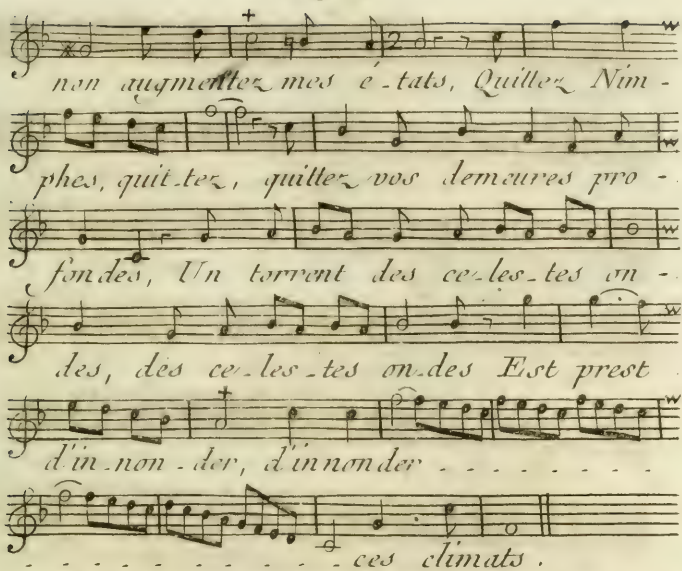 non augmentez mes é-tats, Quittez Nim-
phes, quit-tez, quittez vos demeures pro-
fondes, Un torrent des ce-les-tes on-
des, des ce-les-tes on-des Est prest
d'in-non-der, d'innonder . . . . . . .
. . . . . . . . . ces climats.